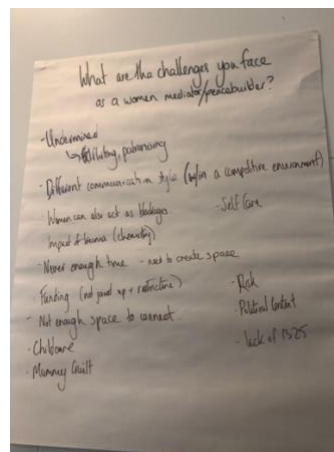 What are the challenges you face
as a women mediator/peacebuilder?
- Undermined
↳ patronising
- Different communication style (w/in a competitive environment)
- Women can also act as blockages
- Self Care
Impact of trauma (chemistry)
- Never enough time - need to create space
- Funding (not joined up + restrictions)
- Risk
- Not enough space to connect
- Political Context
- Childcare
- lack of 1325
- Mummy Guilt